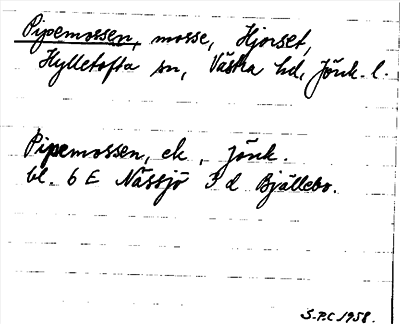 Pipemossen, mosse, Hjorset,
Hylletofta sn, Västra hd, Jönk. l.
Pipemossen, ek, Jönk.
bl. 6 E Nässjö 3 d Bjällebo.
S.P.C 1958.